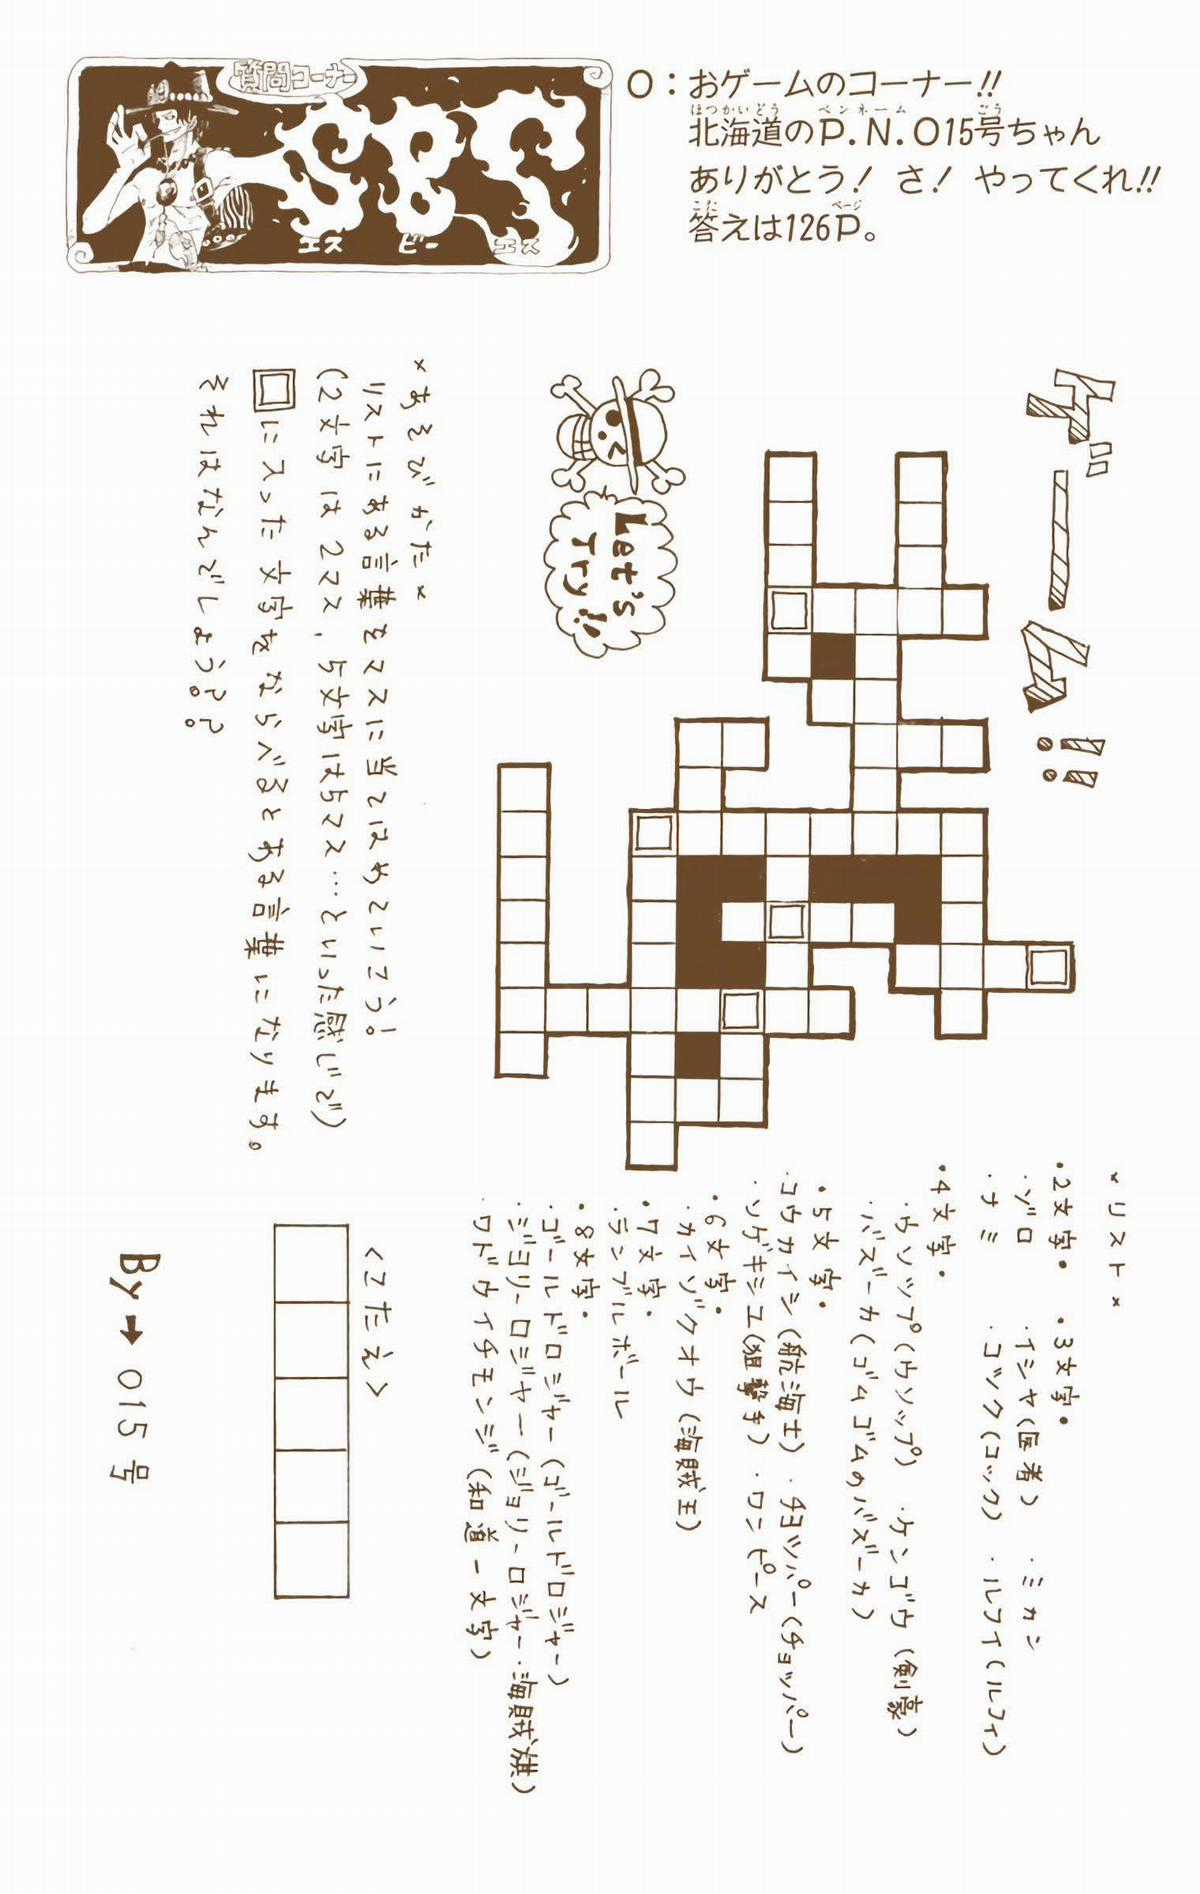 質問コーナー
SBS
エス ビー エス
O：おゲームのコーナー!!
北海道のP.N.015号ちゃん
ほっかいどう ペンネーム ごう
ありがとう！ さ！ やってくれ!!
答えは126P。
こた ページ
ゲーム!!
Let's
Try!!
×あそびかた×
リストにある言葉をマスに当てはめていこう!
(2文字は2マス, 5文字は5マス…といった感じで)
□に入った文字をならべるとある言葉になります。
それはなんでしょう??
×リスト×
・2文字・ ・3文字・
・ゾロ ・イシャ(医者) ・ミカン
・ナミ ・コック(コック) ・ルフイ(ルフィ)
・4文字・
・ウソップ(ウソップ) ・ケンゴウ(剣豪)
・バズーカ(ゴムゴムのバズーカ)
・5文字・
・コウカイシ(航海士) ・チヨツパー(チョッパー)
・ソゲキシユ(狙撃手) ・ワンピース
・6文字・
・カイゾクオウ(海賊王)
・7文字・
・ランブルボール
・8文字・
・ゴールドロジヤー(ゴールドロジャー)
・ジヨリーロジヤー(ジョリーロジャー・海賊旗)
・ワドウイチモンジ(和道一文字)
<こたえ>
By→015号